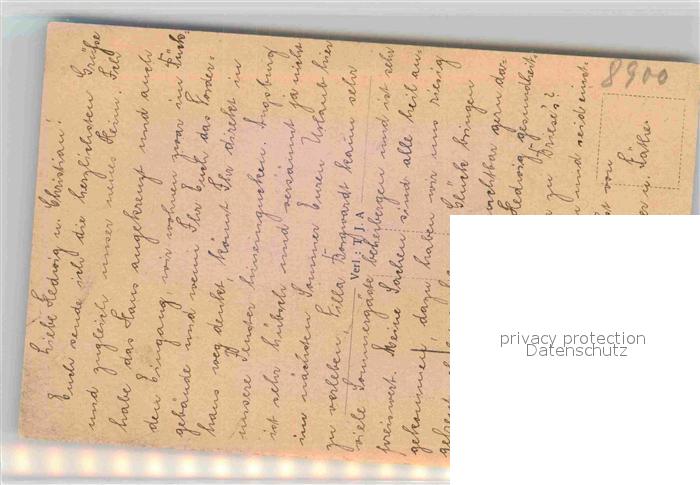 Liebe Hedwig u. Christian!
Euch sende ich die herzlichsten Grüße
und zugleich unser neues Heim. Ich
habe das Haus angekreuzt und auch
den Eingang, wir wohnen zwar im Rück-
gebäude und wenn Ihr Euch das Vorder-
haus weg denkt, könnt Ihr direkt in
unsere Fenster hineingucken. Augsburg
ist sehr hübsch und versäumt ja nicht
im nächsten Sommer Euren Urlaub hier
zu verleben, Villa Borgwardt kann sehr
viele Sommergäste beherbergen und ist sehr
preiswert. Meine Sachen sind alle heil an-
gekommen, dazu haben wir uns riesig
Glück bringen
gern da-
Hedwig gesundheit-
zu Driese's?
und seid
von
u. Käthe.
Verl: T J A
8900
privacy protection
Datenschutz